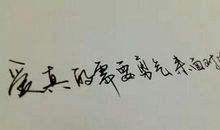 爱真的需要勇气来面对